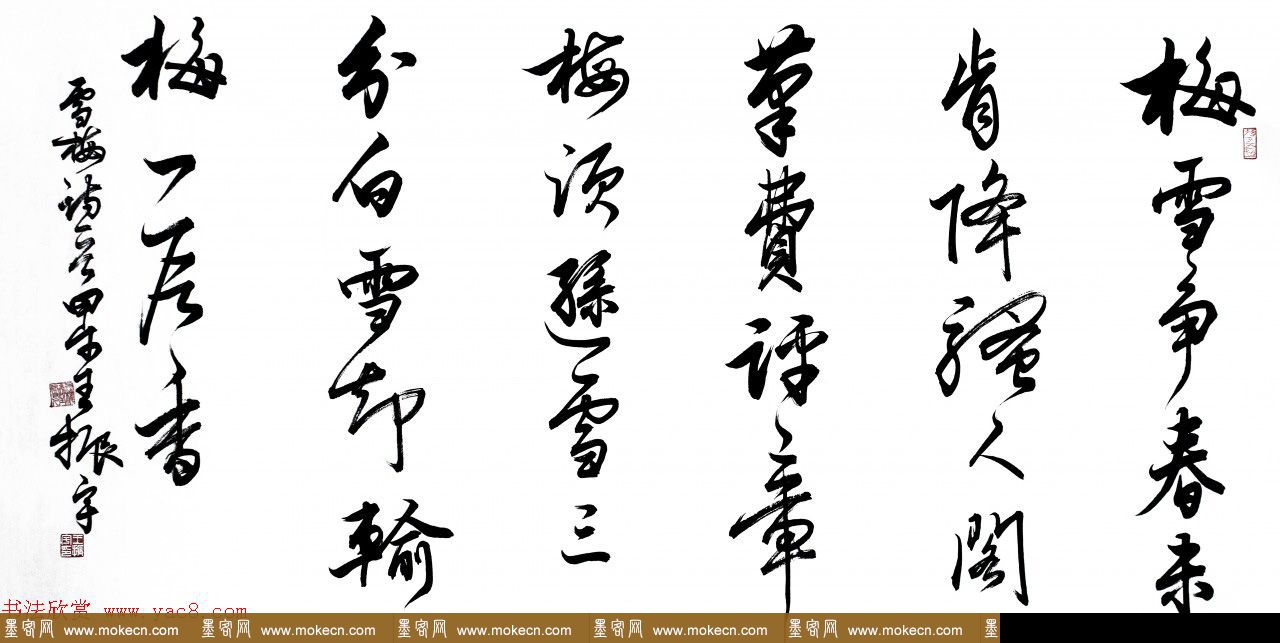 梅雪争春未
肯降騷人閣
筆費評章
梅須遜雪三
分白雪却輸
梅一段香
雪梅詩一首甲午王振宇
书法欣赏 www.yac8.com
墨客网 www.mokecn.com 墨客网 www.mokecn.com 墨客网 www.mokecn.com 墨客网 www.mokecn.com 墨客网 www.mokecn.com